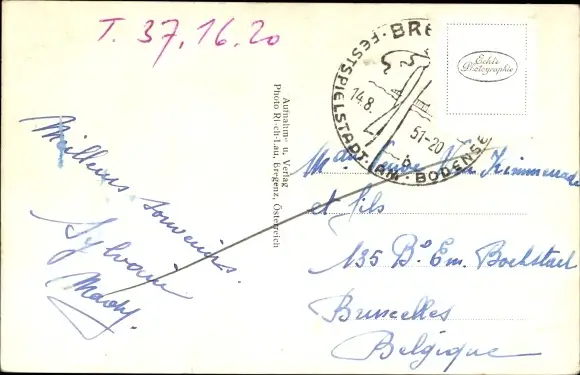 T. 37.16.20
BRE
FESTSPIELSTADT AM BODENSEE
14.8. 51-20
Echte
Photographie
Aufnahme u. Verlag
Photo Risch-Lau, Bregenz, Österreich
Meilleurs souvenirs.
Sylvain
Mady.
Mme Veuve Van
et fils
135 Bd Em. Bockstael
Bruxelles
Belgique